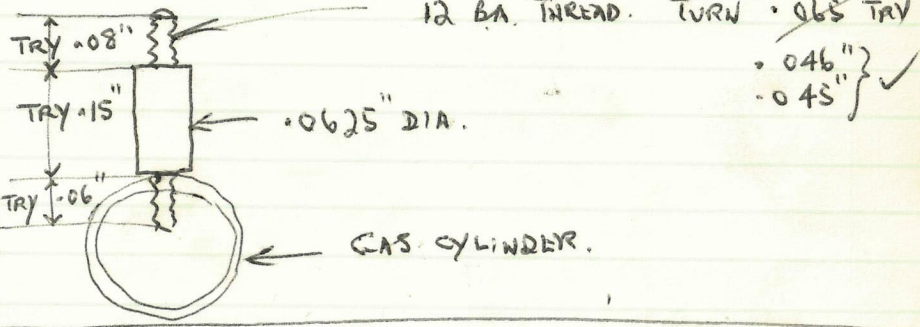 12 BA. THREAD. TURN .065 TRY
.046"
.045"
TRY .08"
TRY .15"
.0625" DIA.
TRY .06"
GAS CYLINDER.